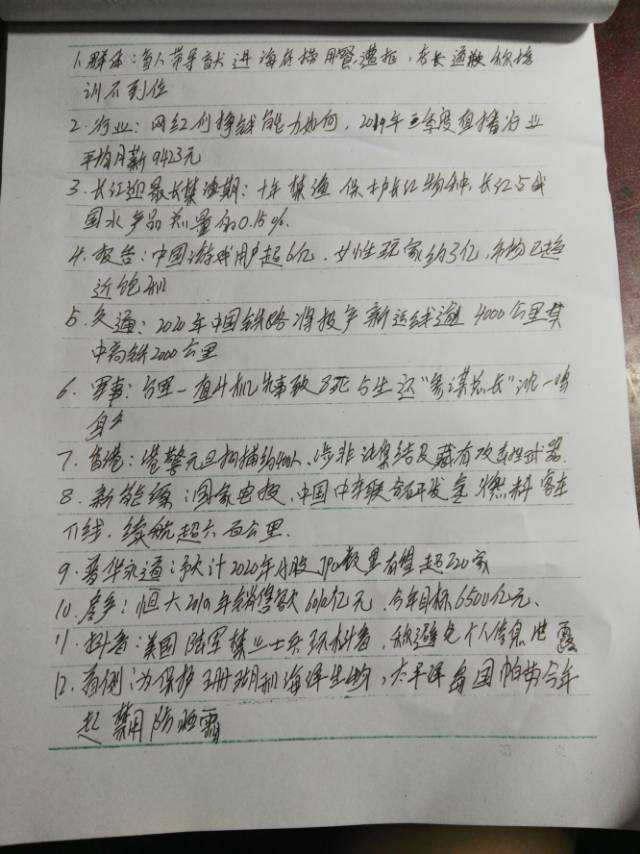 1. 群体：盲人带导盲犬进海底捞用餐遭拒，店长道歉称培
训不到位
2. 行业：网红们挣钱能力如何，2019年三季度直播行业
平均月薪9423元
3. 长江迎最长禁渔期：十年禁渔保护长江物种，长江占我
国水产品总量的0.15%.
4. 报告：中国游戏用户超6亿，女性玩家约3亿，市场已趋
近饱和
5. 交通：2020年中国铁路将投产新运线逾4000公里其
中高铁2000公里
6. 军事：台黑一直升机失事致8死 台生还“参谋总长”沈一鸣
身亡
7. 香港：港警元旦拘捕约400人，涉非法集结及藏有攻击性武器.
8. 新能源：国家电投、中国中车联合研发氢燃料客车
下线.续航超六百公里.
9. 普华永道：预计2020年A股IPO数量有望超220家
10. 房产：恒大2019年销售额6010亿元，今年目标6500亿元、
11. 抖音：美国陆军禁止士兵玩抖音，称避免个人信息泄露
12. 首例：为保护珊瑚和海洋生物，太平洋岛国帕劳今年
起禁用防晒霜